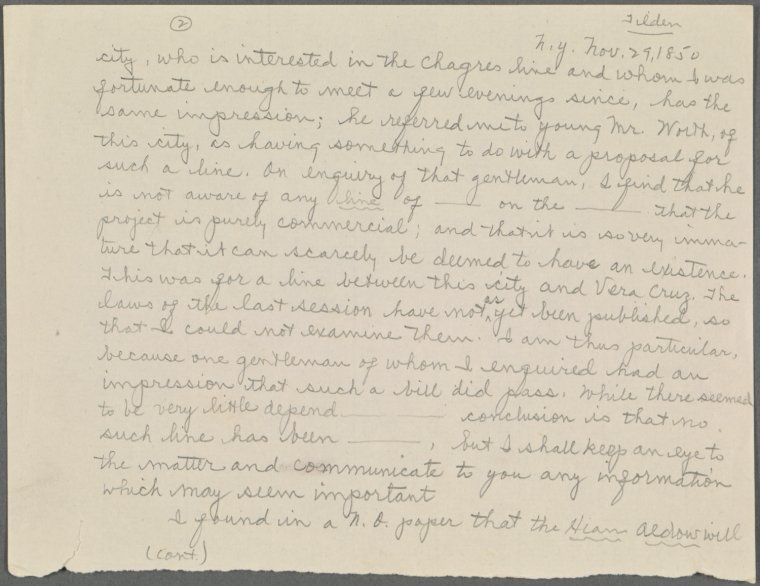 ②
Tilden
N.Y. Nov. 29, 1850
city, who is interested in the Chagres line and whom I was
fortunate enough to meet a few evenings since, has the
same impression; he referred me to young Mr. Worth, of
this city, as having something to do with a proposal for
such a line. On enquiry of that gentleman, I find that he
is not aware of any line of ____ on the ____ that the
project is purely commercial; and that it is so very imma-
ture that it can scarcely be deemed to have an existence.
This was for a line between this city and Vera Cruz. The
laws of the last session have not as yet been published, so
that I could not examine them. I am thus particular,
because one gentleman of whom I enquired had an
impression that such a bill did pass. While there seemed
to be very little depend ____ conclusion is that no
such line has been ____, but I shall keep an eye to
the matter and communicate to you any information
which may seem important
I found in a N.O. paper that the will
(cont.)